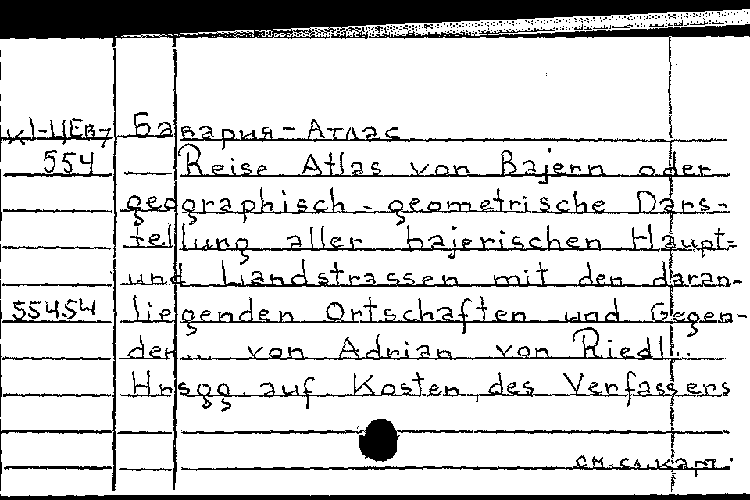 К1-ЦЕв7 Бавария-Атлас
554 Reise Atlas von Bajern oder
geographisch-geometrische Dars-
tellung aller bajerischen Haupt=
und Landstrassen mit den daran-
55454 liegenden Ortschaften und Gegen-
den... von Adrian von Riedl..
Hrsgg auf Kosten des Verfassers
см.сл.карт.